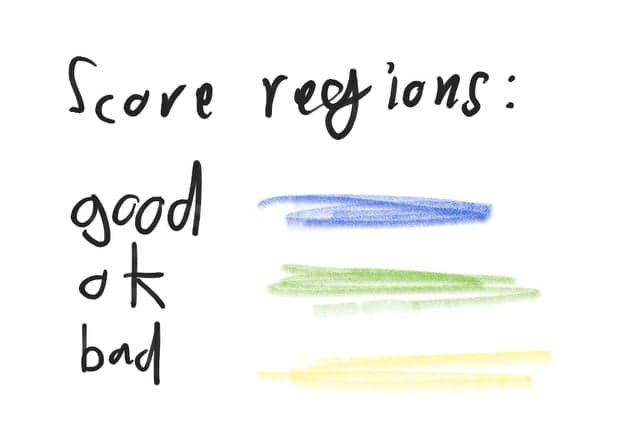 Score regions:
good
ok
bad